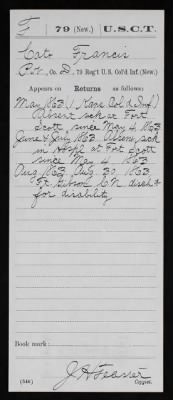 F 79 (New.) U.S.C.T.
Cato Francis
Pvt., Co. D, 79 Reg't U. S. Col'd Inf. (New.)
Appears on Returns as follows:
May 1863, (1 Kans Col'd Inf)
Absent sick at Fort
Scott, since May 4, 1863
June & July 1863 Absent sick
in Hospl at Fort Scott
since May 4 1863
Aug 1863, Aug 30, 1863,
Ft. Gibson C.N. disch'd
for disability
Book mark:
(546) J H Feaster
Copyist.